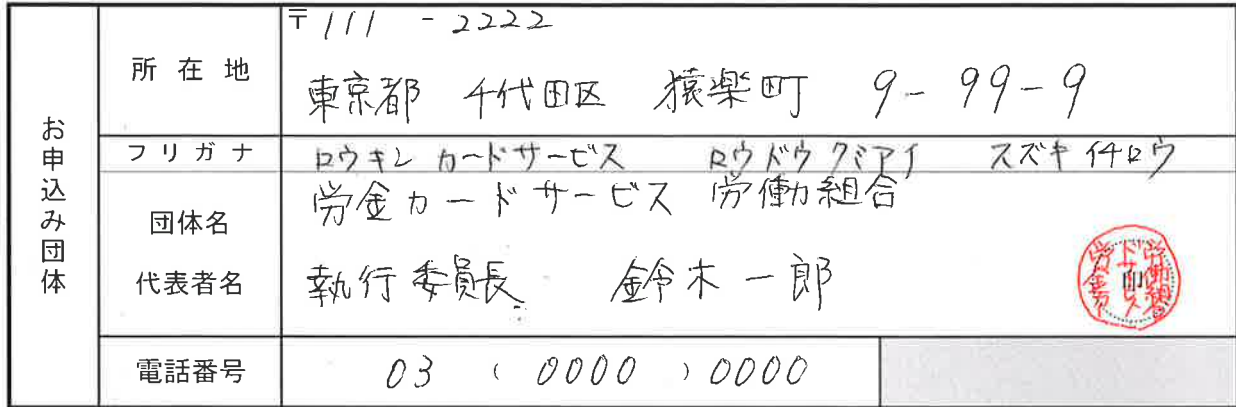 お申込み団体
所在地
〒111-2222
東京都 千代田区 猿楽町 9-99-9
フリガナ
ロウキン カードサービス ロウドウクミアイ スズキイチロウ
団体名
労金カードサービス 労働組合
代表者名
執行委員長 鈴木一郎
印
労働組合
ドサービス
労金カー
電話番号
03 ( 0000 ) 0000